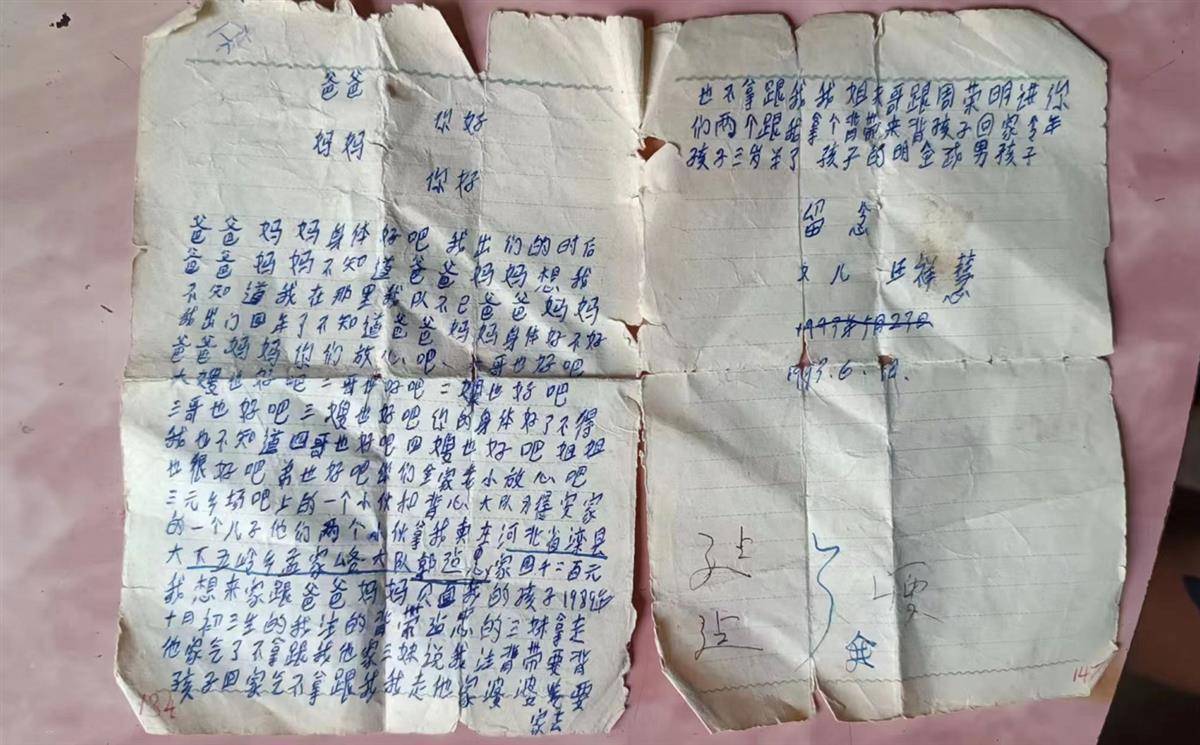 爸爸
你好
妈妈
你好
爸爸妈妈身体好吧 我出们的时后
爸爸妈妈不知道爸爸妈妈想我
不知道我在那里我队不已爸爸妈妈
我出门四年了不知道爸爸妈妈身体好不好
爸爸妈妈你们放心吧 哥也好吧
大嫂也好吧二哥也好吧二嫂也好吧
三哥也好吧三嫂也好吧你的身体好了不得
我也不知道四哥也好吧四嫂也好吧姐姐
也很好吧弟也好吧你们全家老小放心吧
三元乡场吧上的一个小伙和背心大队 家
的一个儿子他们两个小伙拿我卖在河北省滦县
大下五岭乡孟家峪大队郭 忠家四千二百元
我想来家跟爸爸妈妈见面我的孩子1989年
十月初三生的我注的背带 忠的三妹拿走
他家气了不拿跟我他家三妹说我注背带要背
孩子回家气不拿跟我我走他家婆婆 要
家去
184
也不拿跟我我姐夫哥跟周荣明进你
们两个跟我拿个背带来背孩子回家今年
孩子三岁半了 孩子的明全 男孩子
留念
女儿 汪祥慧
6.12.
全
147